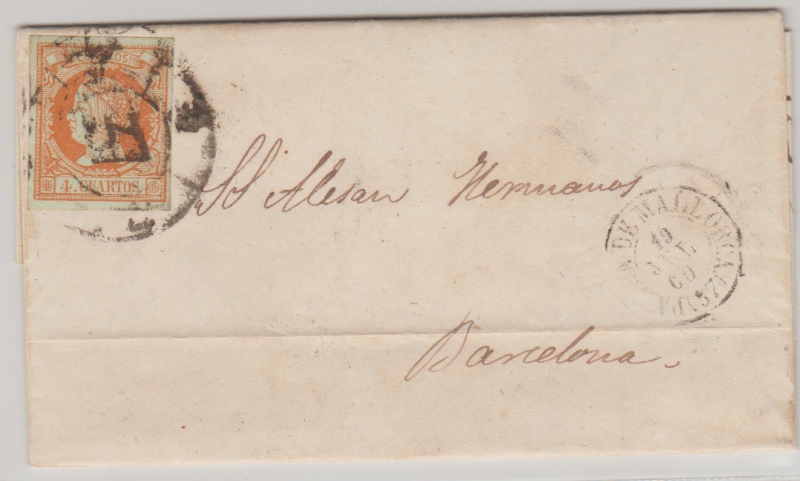 4. CUARTOS.
Alesan Hermanos
DE MALLORCA
19
JUL
60
Barcelona.